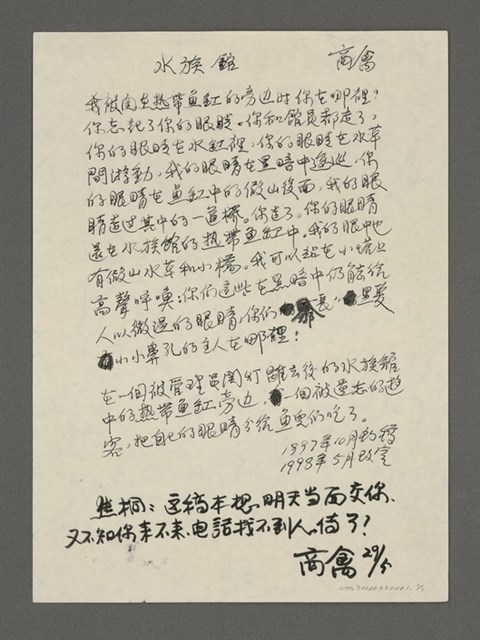 水族館 商禽
我被関在热带鱼缸的旁边时你在哪裡?
你忘記了你的眼睛。你和館員都走了,
你的眼睛在水缸裡,你的眼睛在水草
間游動,我的眼睛在黑暗中逡巡,你
的眼睛在鱼缸中的假山後面,我的眼
睛走过其中的一道橋。你走了。你的眼睛
还在水族館的热带鱼缸中。我的眼中也
有假山水草和小橋。我可以站在小塔上
高聲呼喚:你們这些在黑暗中仍能給
人以微温的眼睛,你們
小小鼻孔的主人在哪裡?
在一個被管理員関灯離去後的水族館
中的热带鱼缸旁边,一個被遺忘的遊
客,把自己的眼睛分給鱼兒們吃了。
1997年10月初稿
1998年5月改定
焦桐:这稿本想明天当面交你、
又不知你来不来、电話找不到人。傳了!
商禽 29/5